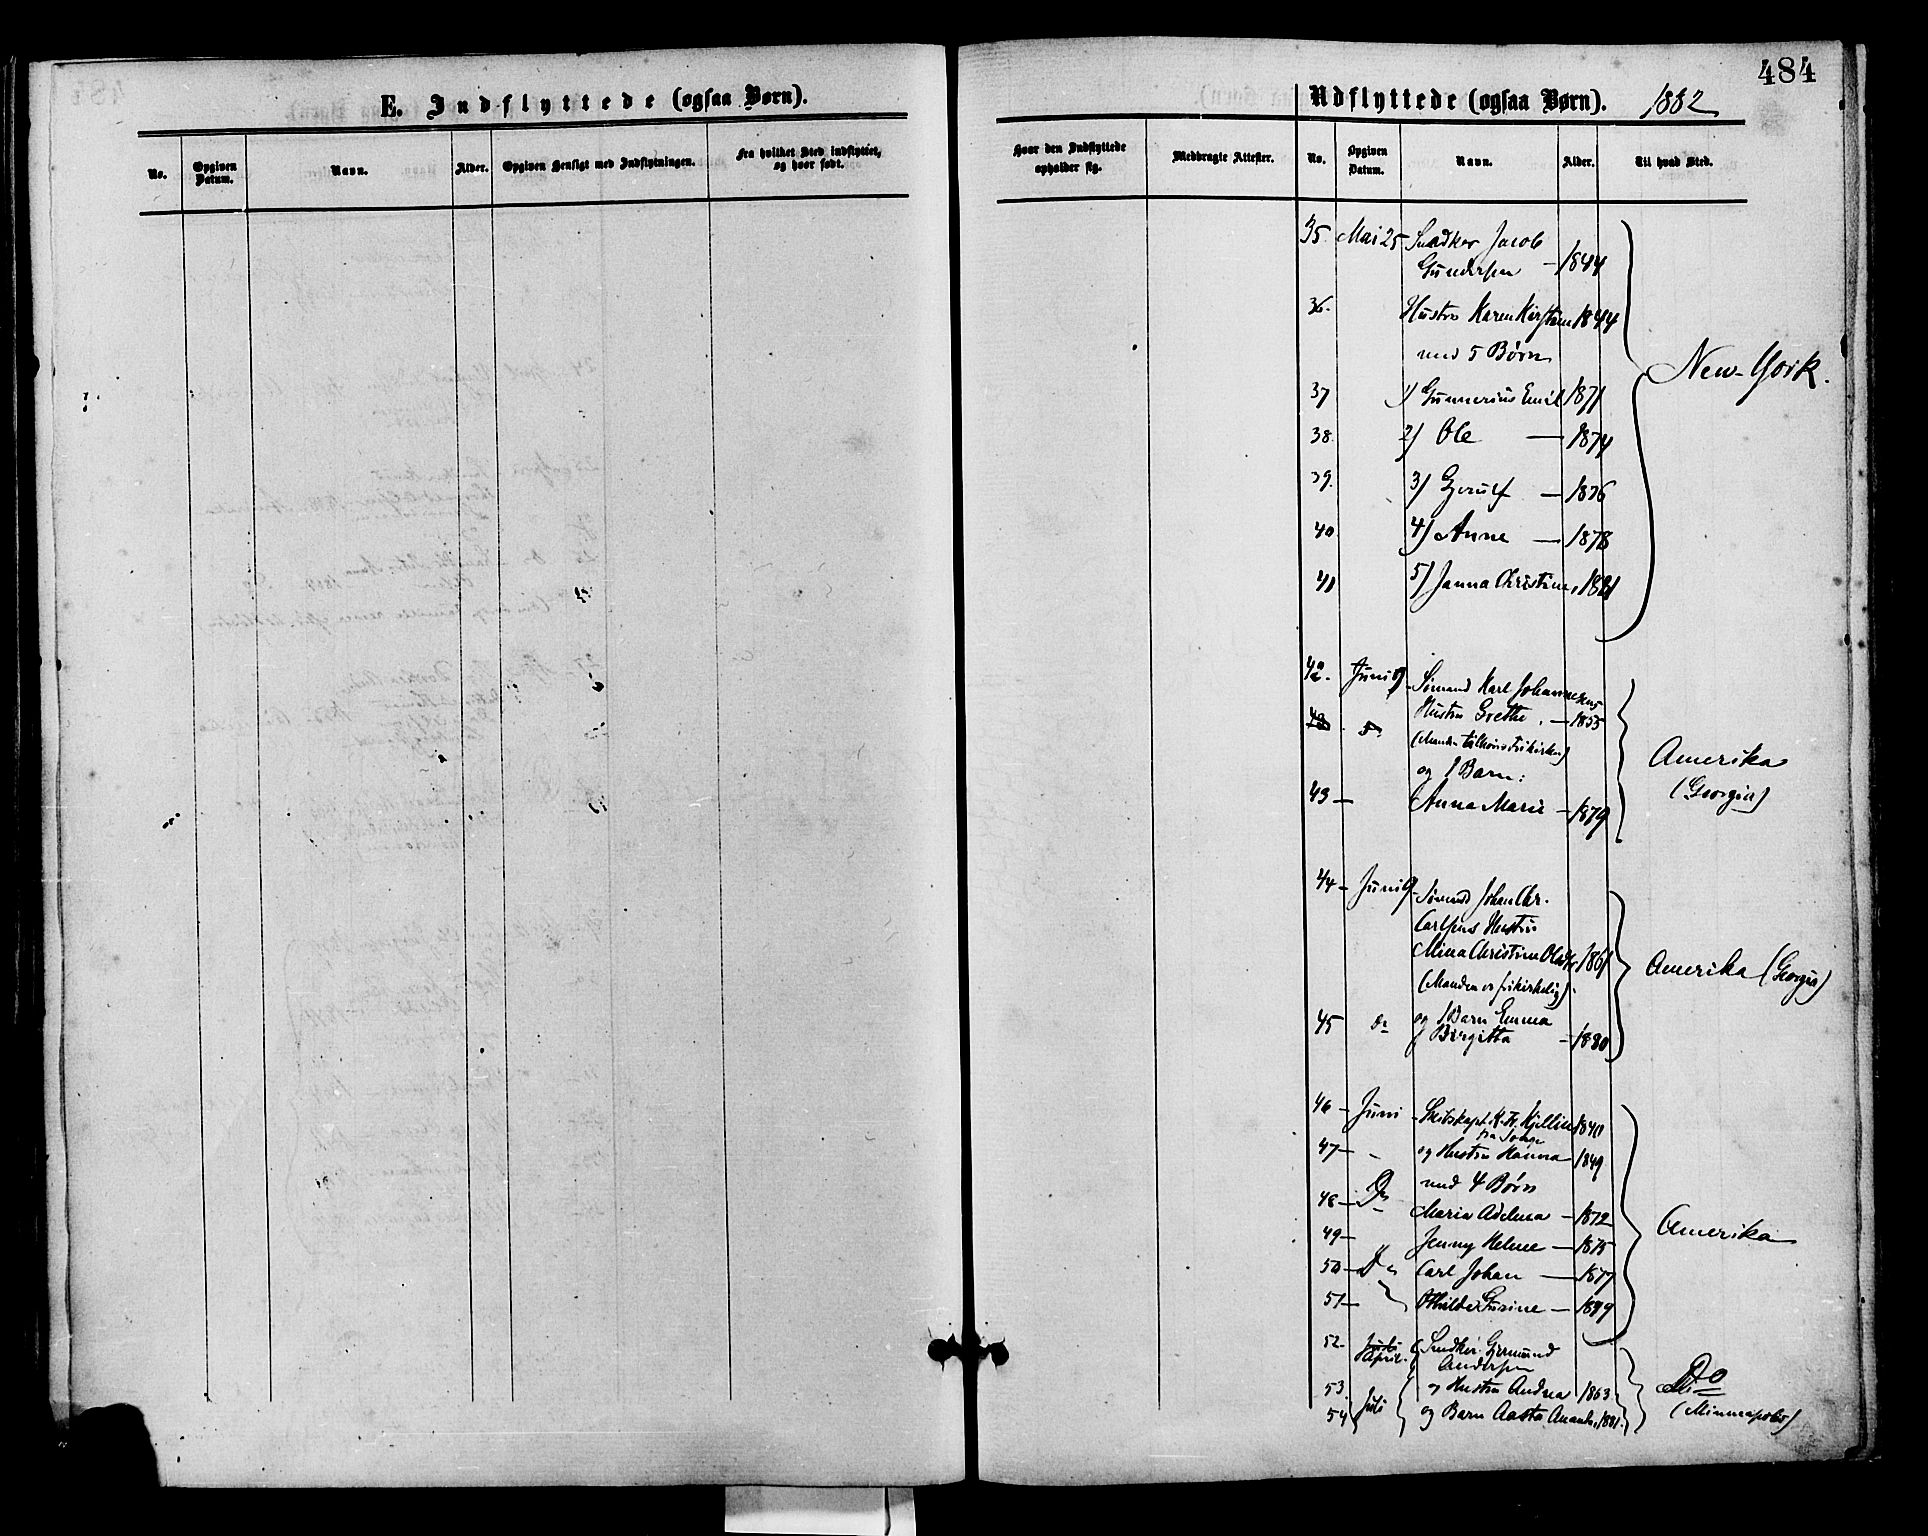 484
E. Indflyttede (ogsaa Børn).
No.
Opgiven Datum.
Navn.
Alder.
Opgiven Hensigt med Indflytningen.
Fra hvilket Sted indflyttet, og hvor født.
Hvor den Indflyttede opholder sig.
Medbragte Attester.
Udflyttede (ogsaa Børn). 1882
No.
Opgiven Datum.
Navn.
Alder.
Til hvad Sted.
35. Mai 25 Snedker Jacob
Gundersen - 1844
36. Hustro Karen Kirstine 1844
med 5 Børn
New-York.
37 1) Gunnerius Emil 1871
38. 2) Ole - 1874
39. 3) - 1876
40 4) Anne - 1878
41 5) Janna Christine, 1881
42. Juni 9 Sømand Karl Johannesens
Hustro Grethe - 1855
og 1 Barn:
Amerika
(Georgia)
43 - Anna Marie - 1879
44 - Juni 9 - Sømand Johan Chr.
Carlsens Hustro
Mina Christine 1861
(Manden er frikirkelig).
Amerika (Georgia)
45 Do og 1 Barn Emma
Birgitta - 1880
46 - Juni - Skibskapt. 1840
47 - og Hustro Hanna 1849
med 4 Børn
48 - Do Maria Adelina - 1872
Amerika
49 - Jenny Helene - 1875
50 - Do Carl Johan - 1877
51 - Othilde - 1879
52. April Snedker Gjermund
Andersen
53. Juli og Hustro Andrea 1863
Do
54 og Barn Aasta 1881.
(Minneapolis)